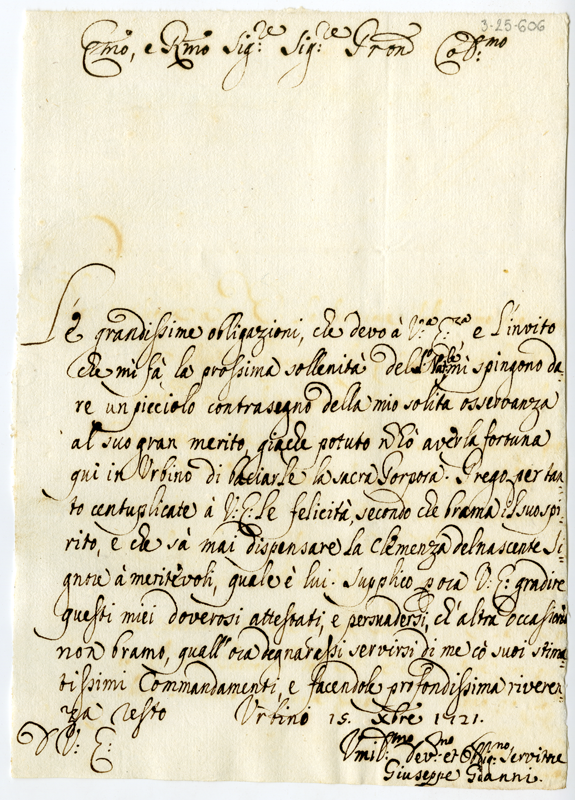 3-25-606
Emo, e Rmo Sig.re Sig.re Pron Col.mo
Le grandissime obligazioni, che devo à V.a E.za e l'invito
che mi fà la prossima sollenità del S. Nat.le mi spingono da-
re un picciolo contrasegno della mio solita osservanza
al suo gran merito, giache potuto nò hò aver la fortuna
qui in Urbino di baciarle la sacra Porpora. Prego per tan
to centuplicate à V: E: le felicità, secondo che brama il suo spi-
rito, e che sà mai dispensare la Clemenza del nascente Si-
gnore à meritevoli, quale è lui. Supplico p ora V: E: gradire
questi miei doverosi attestati, e persuadersi, ch'altra occasione
non bramo, quall'ora degnarassi servirsi di me cò suoi stima
tissimi Commandamenti, e facendole profondissima riveren-
za resto Urbino 15. Xbre 1721.
D V: E:
Umil.mo dev.mo et Oblig.mo Servitore
Giuseppe Gianni.